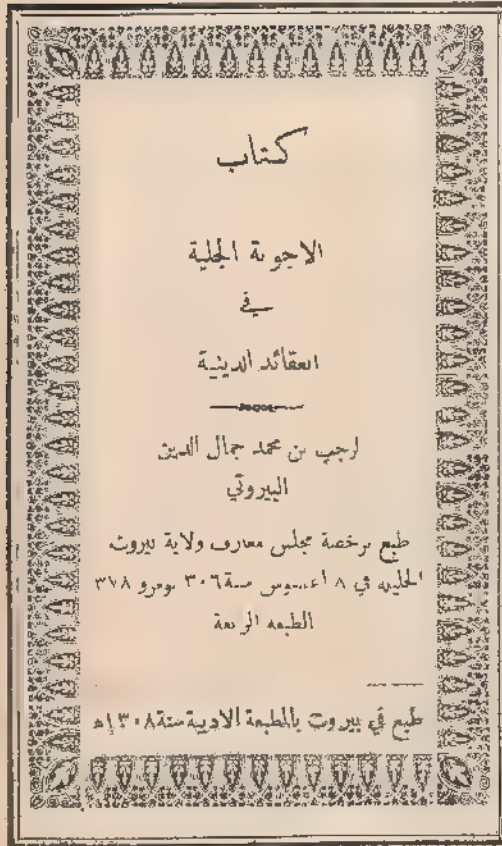 كتاب
الاجوبة الجلية
في
العقائد الدينية
لرجب بن محمد جمال الدين
البيروتي
طبع برخصة مجلس معارف ولاية بيروت
الجليلة في ٨ اغسطوس سنة ٣٠٦ نومرو ٣٧٨
الطبعة الرابعة
طبع في بيروت بالمطبعة الادبية سنة ١٣٠٨ﻫ